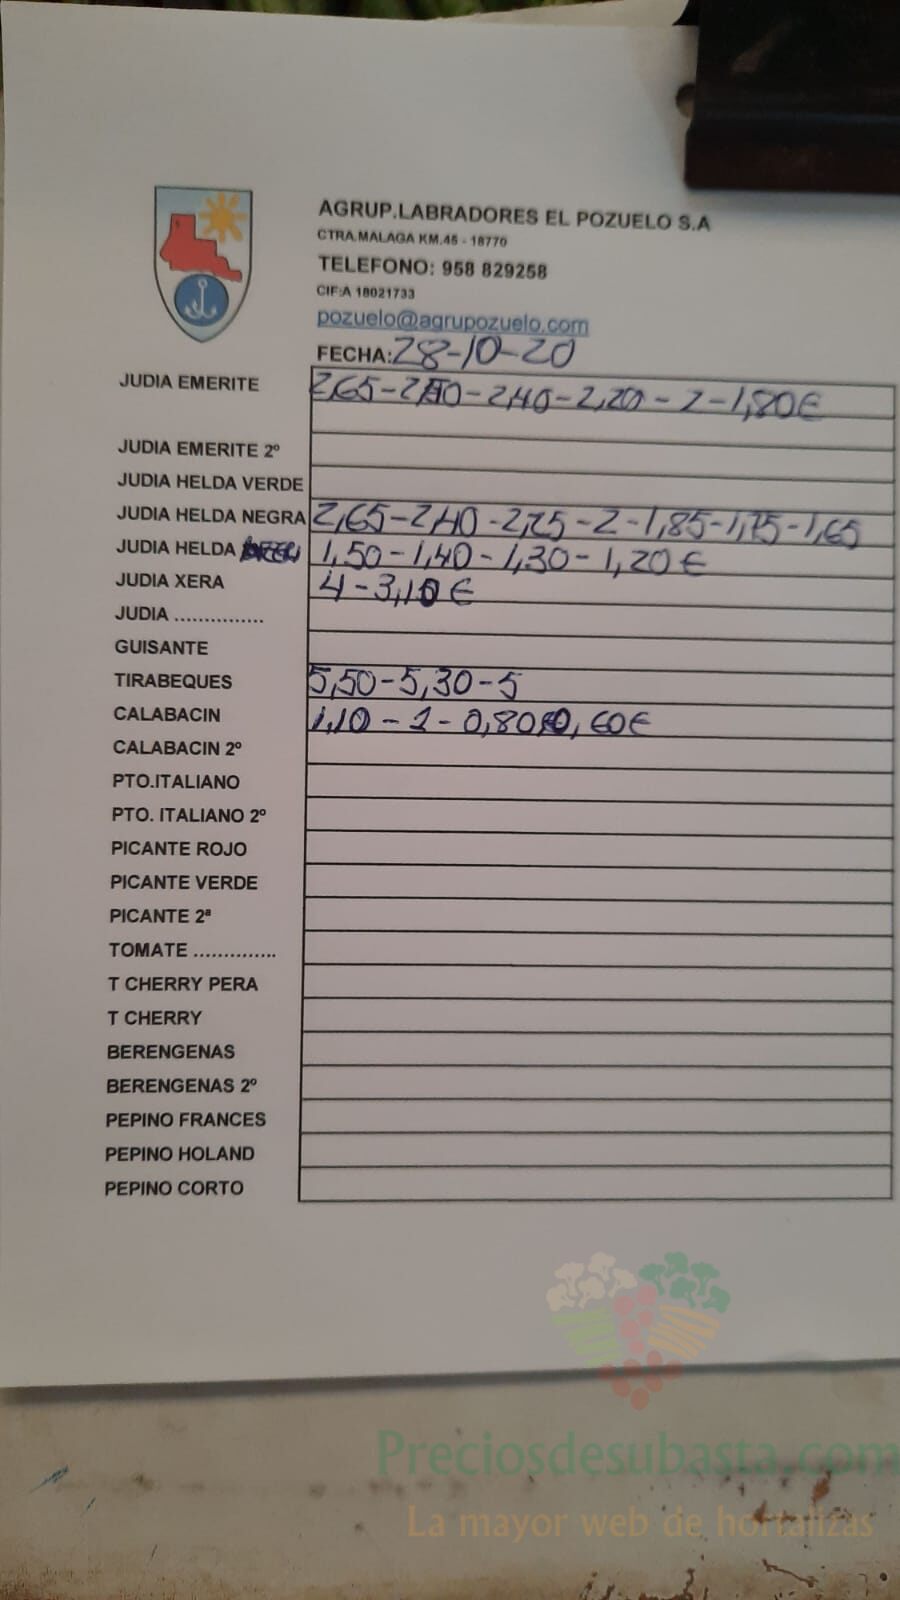 AGRUP.LABRADORES EL POZUELO S.A
CTRA.MALAGA KM.45 - 18770
TELEFONO: 958 829258
CIF:A 18021733
pozuelo@agrupozuelo.com
FECHA: 28-10-20
JUDIA EMERITE 2,65-2,50-2,40-2,20-2-1,80€
JUDIA EMERITE 2º
JUDIA HELDA VERDE
JUDIA HELDA NEGRA 2,65-2,40-2,25-2-1,85-1,75-1,65
JUDIA HELDA 1,50-1,40-1,30-1,20€
JUDIA XERA 4-3,10€
JUDIA ...............
GUISANTE
TIRABEQUES 5,50-5,30-5
CALABACIN 1,10-1-0,80 0,60€
CALABACIN 2º
PTO.ITALIANO
PTO. ITALIANO 2º
PICANTE ROJO
PICANTE VERDE
PICANTE 2ª
TOMATE ..............
T CHERRY PERA
T CHERRY
BERENGENAS
BERENGENAS 2º
PEPINO FRANCES
PEPINO HOLAND
PEPINO CORTO
Preciosdesubasta.com
La mayor web de hortalizas